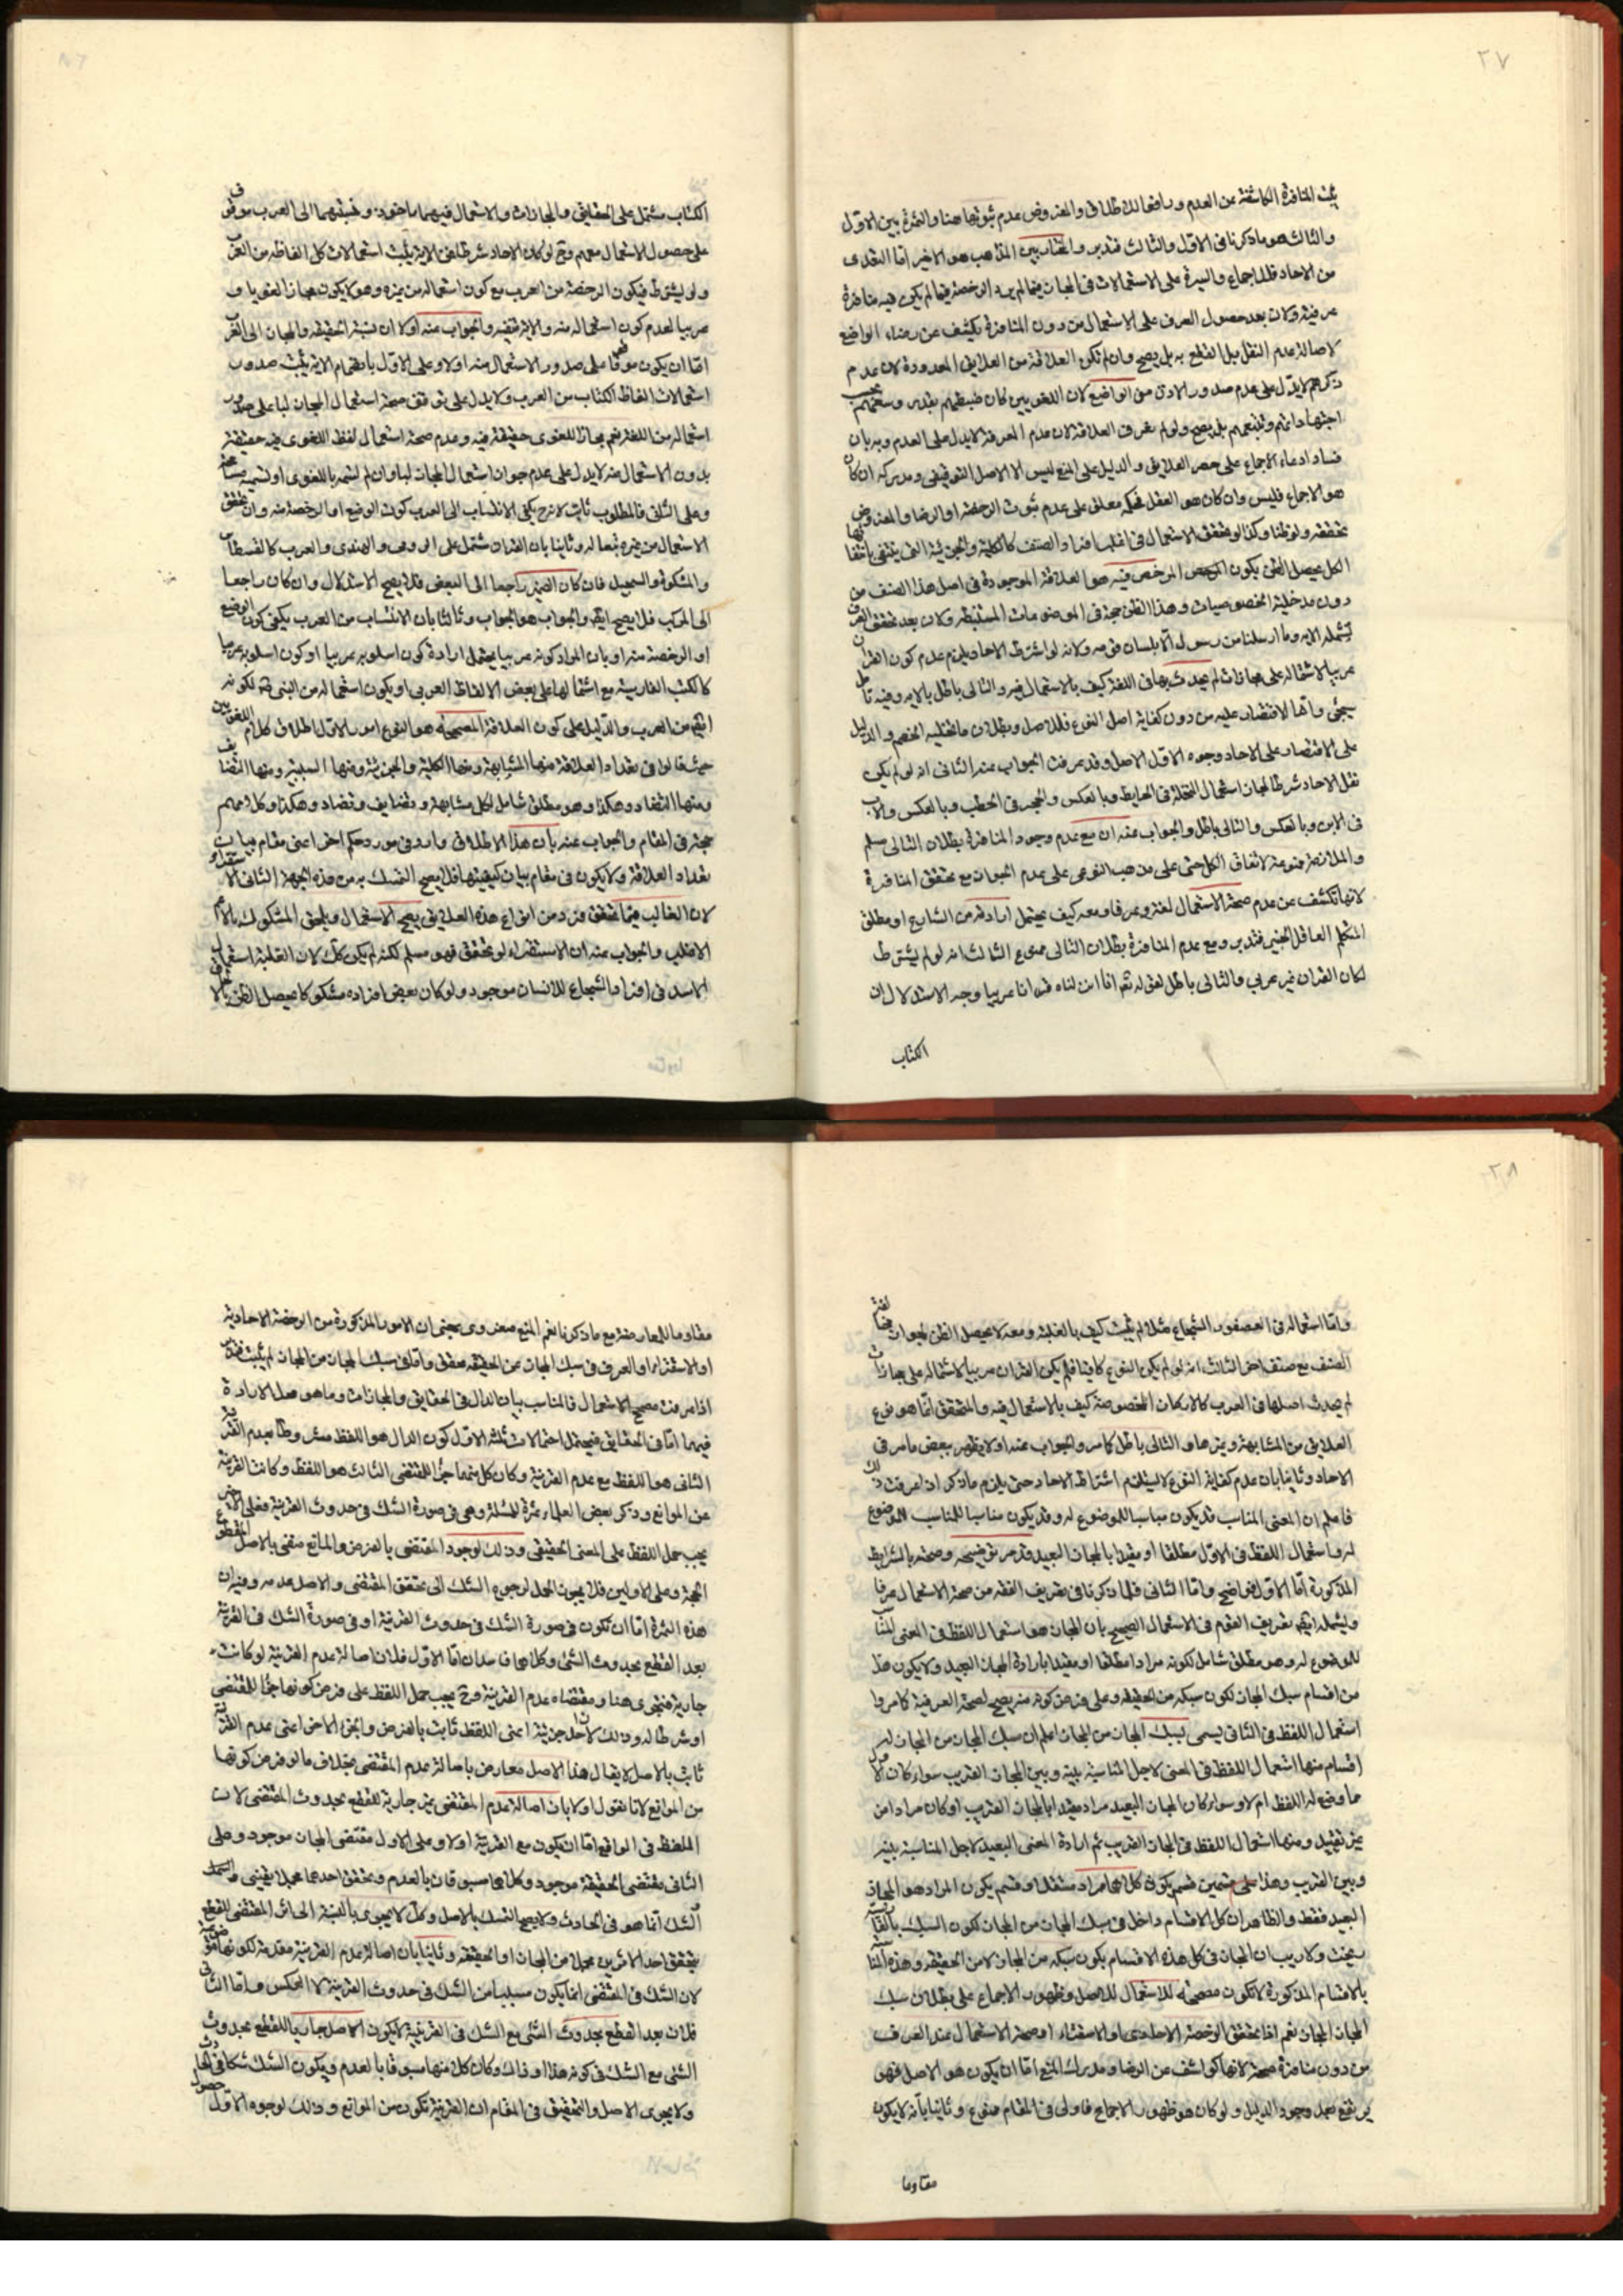 ٢٧
يثبت المنافرة الكاشفة عن العدم ورافعا للاطلاق والمفروض عدم ثبوتها هنا والثمرة بين الاول
والثالث هو ما ذكرنا فى الاول والثالث فتدبر والمختار بين المذاهب هو الاخير اما التعدى
من الاحاد فللاجماع والسيرة على الاستعمالات فى المجاز فيما لم يرد الرخصة فيما لم يكن فيه منافرة
عرفية ولان بعد حصول العرف على الاستعمال من دون المنافرة يكشف عن رضاء الواضع
لاصالة عدم النقل بل القطع به بل يصح وان لم تكن العلاقة من العلايق المعدودة لان عدم
ذكرهم لا يدل على عدم صدور الاذن من الواضع لان اللغويين كان ضبطهم بقدر وسعهم بحسب
اجتهاداتهم وتتبعهم بل يصح ولو لم نعرف العلاقة لان عدم المعرفة لا يدل على العدم وبه بان
فساد ادعاء الاجماع على حصر العلايق والدليل على المنع ليس الا الاصل التوقيفى ومدركه ان كان
هو الاجماع فليس وان كان هو العقل فحكمه معلق على عدم ثبوت الرخصة او الرضا والمفروض
تحققه ولو ظنا وكذا لو تحقق الاستعمال فى اغلب افراد الصنف كالكلية والجزئية التى ينتفى بانتفائها
الكل يحصل الظن بكون المرخص فيه هو العلاقة الموجودة فى اصل هذا الصنف من
دون مدخلية الخصوصيات وهذا الظن حجة فى الموضوعات المستنبطة ولان بعد تحقق العرف
تشمله الاية وما ارسلنا من رسول الا بلسان قومه ولانه لو اشترط الاحاد يلزم عدم كون القران
عربيا لاشتماله على مجازات لم يحدث بها فى اللغة كيف بالاستعمال فيه والتالى باطل بالاية وفيه تامل
سيجئ واما الاقتصار عليه من دون كفاية اصل النوع فللاصل وبطلان ما تخيله الخصم والدليل
على الاقتصار على الاحاد وجوه الاول الاصل وقد عرفت الجواب عنه الثانى انه لو لم يكن
نقل الاحاد شرطا لجاز استعمال النخلة فى الحايط وبالعكس والحجر فى الحطب وبالعكس والاب
فى الابن وبالعكس والتالى باطل والجواب عنه ان مع عدم وجود المنافرة بطلان التالى مسلم
والملازمة ممنوعة لاتفاق الكل حتى على مذهب النوعى على عدم الجواز مع تحقق المنافرة
لانها تكشف عن عدم صحة الاستعمال لغة وعرفا ومعه كيف يحتمل ارادته من الشارع او مطلق
المتكلم العاقل الخبير فتدبر ومع عدم المنافرة بطلان التالى ممنوع الثالث انه لو لم يشترط
لكان القران غير عربي والتالى باطل لقوله تعم انا انزلناه قرانا عربيا وجه الاستدلال ان
الكتاب
الكتاب مشتمل على الحقايق والمجازات والاستعمال فيهما ماخوذ ونسبتهما الى العرب موقوف
على حصول الاستعمال معهم وح لو كان الاحاد شرطا فمن الاية يثبت استعمالات كل الفاظه من العرب
ولو لم يشترط فيكون الرخصة من العرب مع كون استعماله من غيره وهو لا يكون مجازا لغويا و
عربيا لعدم كون استعماله منه والاية تنفيه والجواب عنه اولا ان نسبة الحقيقة والمجاز الى العرب
اما ان يكون موقوفا على صدور الاستعمال منه اولا وعلى الاول بانضمام الاية يثبت صدور
استعمالات الفاظ الكتاب من العرب ولا يدل على توقف صحة استعمال المجاز لبا على صدور
استعماله من اللغة نعم مجازا للغوى حقيقة فيه وعدم صحة استعمال لفظ اللغوى فيه حقيقة
بدون الاستعمال منه لا يدل على عدم جواز استعمال المجاز لبا وان لم نسمه باللغوى او نسميه مسامحة
وعلى الثانى فالمطلوب ثابت لانه ح يكفى الانتساب الى العرب كون الوضع او الرخصة منه وان تحقق
الاستعمال من غيره تبعا له وثانيا بان القران مشتمل على الرومى والهندى والعرب كالقسطاس
والمشكوة والسجيل فان كان الضمير راجعا الى البعض فلا يصح الاستدلال وان كان راجعا
الى المركب فلا يصح ايضا والجواب هو الجواب وثالثا بان الانتساب من العرب يكفى كون الوضع
او الرخصة منه او بان المراد كونه عربيا يحتمل ارادة كون اسلوبه عربيا او كون اسلوبه عربيا
كالكتب الفارسية مع اشتمالها على بعض الالفاظ العربى او يكون استعماله من النبى ص لكونه
ايضا من العرب والدليل على كون العلاقة المصححة هو النوع امور الاول اطلاق كلام اللغويين
حيث قالوا فى تعداد العلاقة منها المشابهة ومنها الكلية والجزئية ومنها السببية ومنها التضايف
ومنها التضاد وهكذا وهو مطلق شامل لكل مشابهة وتضايف وتضاد وهكذا وكلامهم
حجة فى المقام والجواب عنه بان هذا الاطلاق وارد فى مورد حكم اخر اعنى مقام بيان
تعداد العلاقة ولا يكون فى مقام بيان كيفيتها فلا يصح التمسك به من هذه الجهة الثانى الاستقراء
لان الغالب مما تحقق فرد من انواع هذه العلايق يصح الاستعمال ويلحق المشكوك بالاعم
الاغلب والجواب عنه ان الاستقراء لو تحقق فهو مسلم لكنه لم يكن كك لان الغلبة استعمال
الاسد فى افراد الشجاع للانسان موجود ولو كان بعض افراده مشكوكا فيحصل الظن بالالحاق
٢٨
واما استعماله فى العصفور الشجاع مثلا لم يثبت كيف بالغلبة ومعه لا يحصل الظن بجوازه لغة
الصنف مع صنف اخر الثالث انه لو لم يكن النوع كافيا فلم يكن القران عربيا لاشتماله على مجازات
لم يحدث اصلها فى العرب كالاركان المخصوصة كيف بالاستعمال فيه والمتحقق انما هو نوع
العلايق من المشابهة وغيرها والتالى باطل كما مر والجواب عنه اولا يظهر ببعض ما مر فى
الاحاد وثانيا بان عدم كفاية النوع لا يستلزم اشتراط الاحاد حتى يلزم ما ذكر اذا عرفت ذلك
فاعلم ان المعنى المناسب قد يكون مناسبا للموضوع له وقد يكون مناسبا للمناسب للموضوع
له واستعمال اللفظ فى الاول مطلقا او مقيدا بالمجاز البعيد قد مر توضيحه وصحته بالشرايط
المذكورة اما الاول فواضح واما الثانى فلما ذكرنا فى تعريف الفقه من صحة الاستعمال عرفا
ويشمله ايضا تعريف القوم فى الاستعمال الصحيح بان المجاز هو استعمال اللفظ فى المعنى المناسب
للموضوع له وهو مطلق شامل لكونه مرادا مطلقا او مقيدا بارادة المجاز البعيد ولا يكون هذا
من اقسام سبك المجاز لكون سبكه من الحقيقة وعلى فرض كونه منه يصح لصحة العرفية كما مر واما
استعمال اللفظ فى الثانى يسمى بسبك المجاز من المجاز اعلم ان سبك المجاز من المجاز له
اقسام منها استعمال اللفظ فى المعنى لاجل المناسبة بينه وبين المجاز القريب سواء كان الاول
ما وضع له اللفظ ام لا وسواء كان المجاز البعيد مرادا مقيدا بالمجاز القريب او كان مرادا من
غير تقييد ومنها استعمال اللفظ فى المجاز القريب ثم ارادة المعنى البعيد لاجل المناسبة بينه
وبين القريب وهذا على قسمين قسم يكون كلاهما مراد مستقلا وقسم يكون المراد هو المجاز
البعيد فقط والظاهر ان كل الاقسام داخل فى سبك المجاز من المجاز لكون السبك
يتحقق ولا ريب ان المجاز فى كل هذه الاقسام يكون سبكه من المجاز لا من الحقيقة وهذه المناسبة
بالاقسام المذكورة لا تكون مصححة للاستعمال للاصل وظهور الاجماع على بطلان سبك
المجاز المجاز نعم اذا تحقق الرخصة الاحادى او الاستقراء او صحة الاستعمال عند العرف
من دون منافرة صحة لانها كواشف عن الرضا ومدرك المنع اما ان يكون هو الاصل فهو
يرتفع بعد وجود الدليل ولو كان هو ظهور الاجماع فاولى فى المقام ممنوع وثانيا بانه لا يكون
مقاوما
مقاوما للمعارضة مع ما ذكرنا نعم المنع صغروى بمعنى ان الامور المذكورة من الرخصة الاحادية
او الاستقراء او العرف فى سبك المجاز عن الحقيقة محقق واما فى سبك المجاز من المجاز لم يثبت
اذا عرفت مصحح الاستعمال فالمناسب بيان الدال فى الحقايق والمجازات وما هو محل الارادة
فيهما اما فى الحقايق فيحتمل احتمالات ثلثة الاول كون الدال هو اللفظ مشروطا بعدم القرينة
الثانى هو اللفظ مع عدم القرينة وكان كل منهما جزء للمقتضى الثالث هو اللفظ وكانت القرينة
عن الموانع وذكر بعض العلماء ثمرة للمسئلة وهى فى صورة الشك فى حدوث القرينة فعلى الاخير
يجب حمل اللفظ على المعنى الحقيقى وذلك لوجود المقتضى بالفرض والمانع منفى بالاصل
الحجة وعلى الاولين فلا يجوز الحمل لرجوع الشك الى تحقق المقتضى والاصل عدمه وفيه ان
هذه الثمرة اما ان تكون فى صورة الشك فى حدوث القرينة او فى صورة الشك فى القرينة
بعد القطع بحدوث الشئ وكلاهما فاسدان اما الاول فلان اصالة عدم القرينة لو كانت
جارية فتجرى هنا ومقتضاه عدم القرينة وح يجب حمل اللفظ على فرض كونها جزء للمقتضى
او شرطا له وذلك لان احد جزئية اعنى اللفظ ثابت بالفرض والجزء الاخر اعنى عدم القرينة
ثابت بالاصل لا يقال هذا الاصل معارض باصالة عدم المقتضى بخلاف ما لو فرض كونها
من الموانع لانا نقول اولا بان اصالة عدم المقتضى غير جارية للقطع بحدوث المقتضى لان
اللفظ فى الواقع اما ان يكون مع القرينة اولا وعلى الاول مقتضى المجاز موجود وعلى
الثانى مقتضى الحقيقة موجود وكلاهما مسبوقان بالعدم وتحقق احدهما مجملا يقينى
الشك انما هو فى الحادث ولا يصح التمسك بالاصل وكك لا يجرى بالنسبة الى المقتضى للقطع
بتحقق احد الامرين مجملا من المجاز او الحقيقة وثانيا بان اصالة عدم القرينة مقدمة لكونها
لان الشك فى المقتضى انما يكون مسببا من الشك فى حدوث القرينة لا العكس واما الثانى
فلان بعد القطع بحدوث الشئ مع الشك فى القرينية لا يكون الاصل جاريا للقطع بحدوث
الشئ مع الشك فى كونه هذا او ذاك وكان كل منهما مسبوقا بالعدم ويكون الشك شكا فى الحادث
ولا يجرى الاصل والتحقيق فى المقام ان القرينة تكون من الموانع وذلك لوجوه الاول